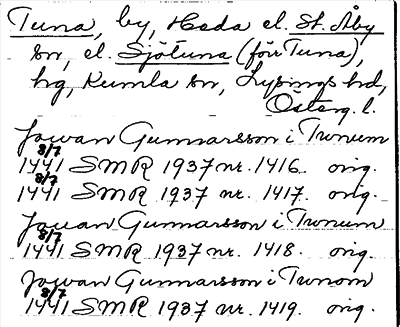 Tuna, by, Heda el. St. Åby
sn, el. Sjötuna (förr Tuna),
hg, Kumla sn, Lysings hd,
Österg. l.
Jowan Gunnarsson i Tunum
1441 8/7 SMR 1937 nr. 1416. orig.
1441 8/7 SMR 1937 nr. 1417. orig.
Jowan Gunnarsson i Tunum
1441 8/7 SMR 1937 nr. 1418. orig.
Jowan Gunnarsson i Tunom
1441 8/7 SMR 1937 nr. 1419. orig.